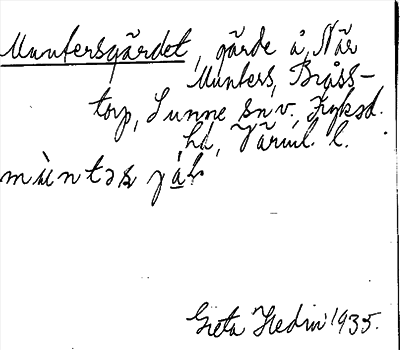 Muntersgärdet, gärde å När
Munters, Bråss-
torp, Sunne snv., Fryksd.
hd, Värml. l.
mùntəs jà
Greta Hedin 1935.